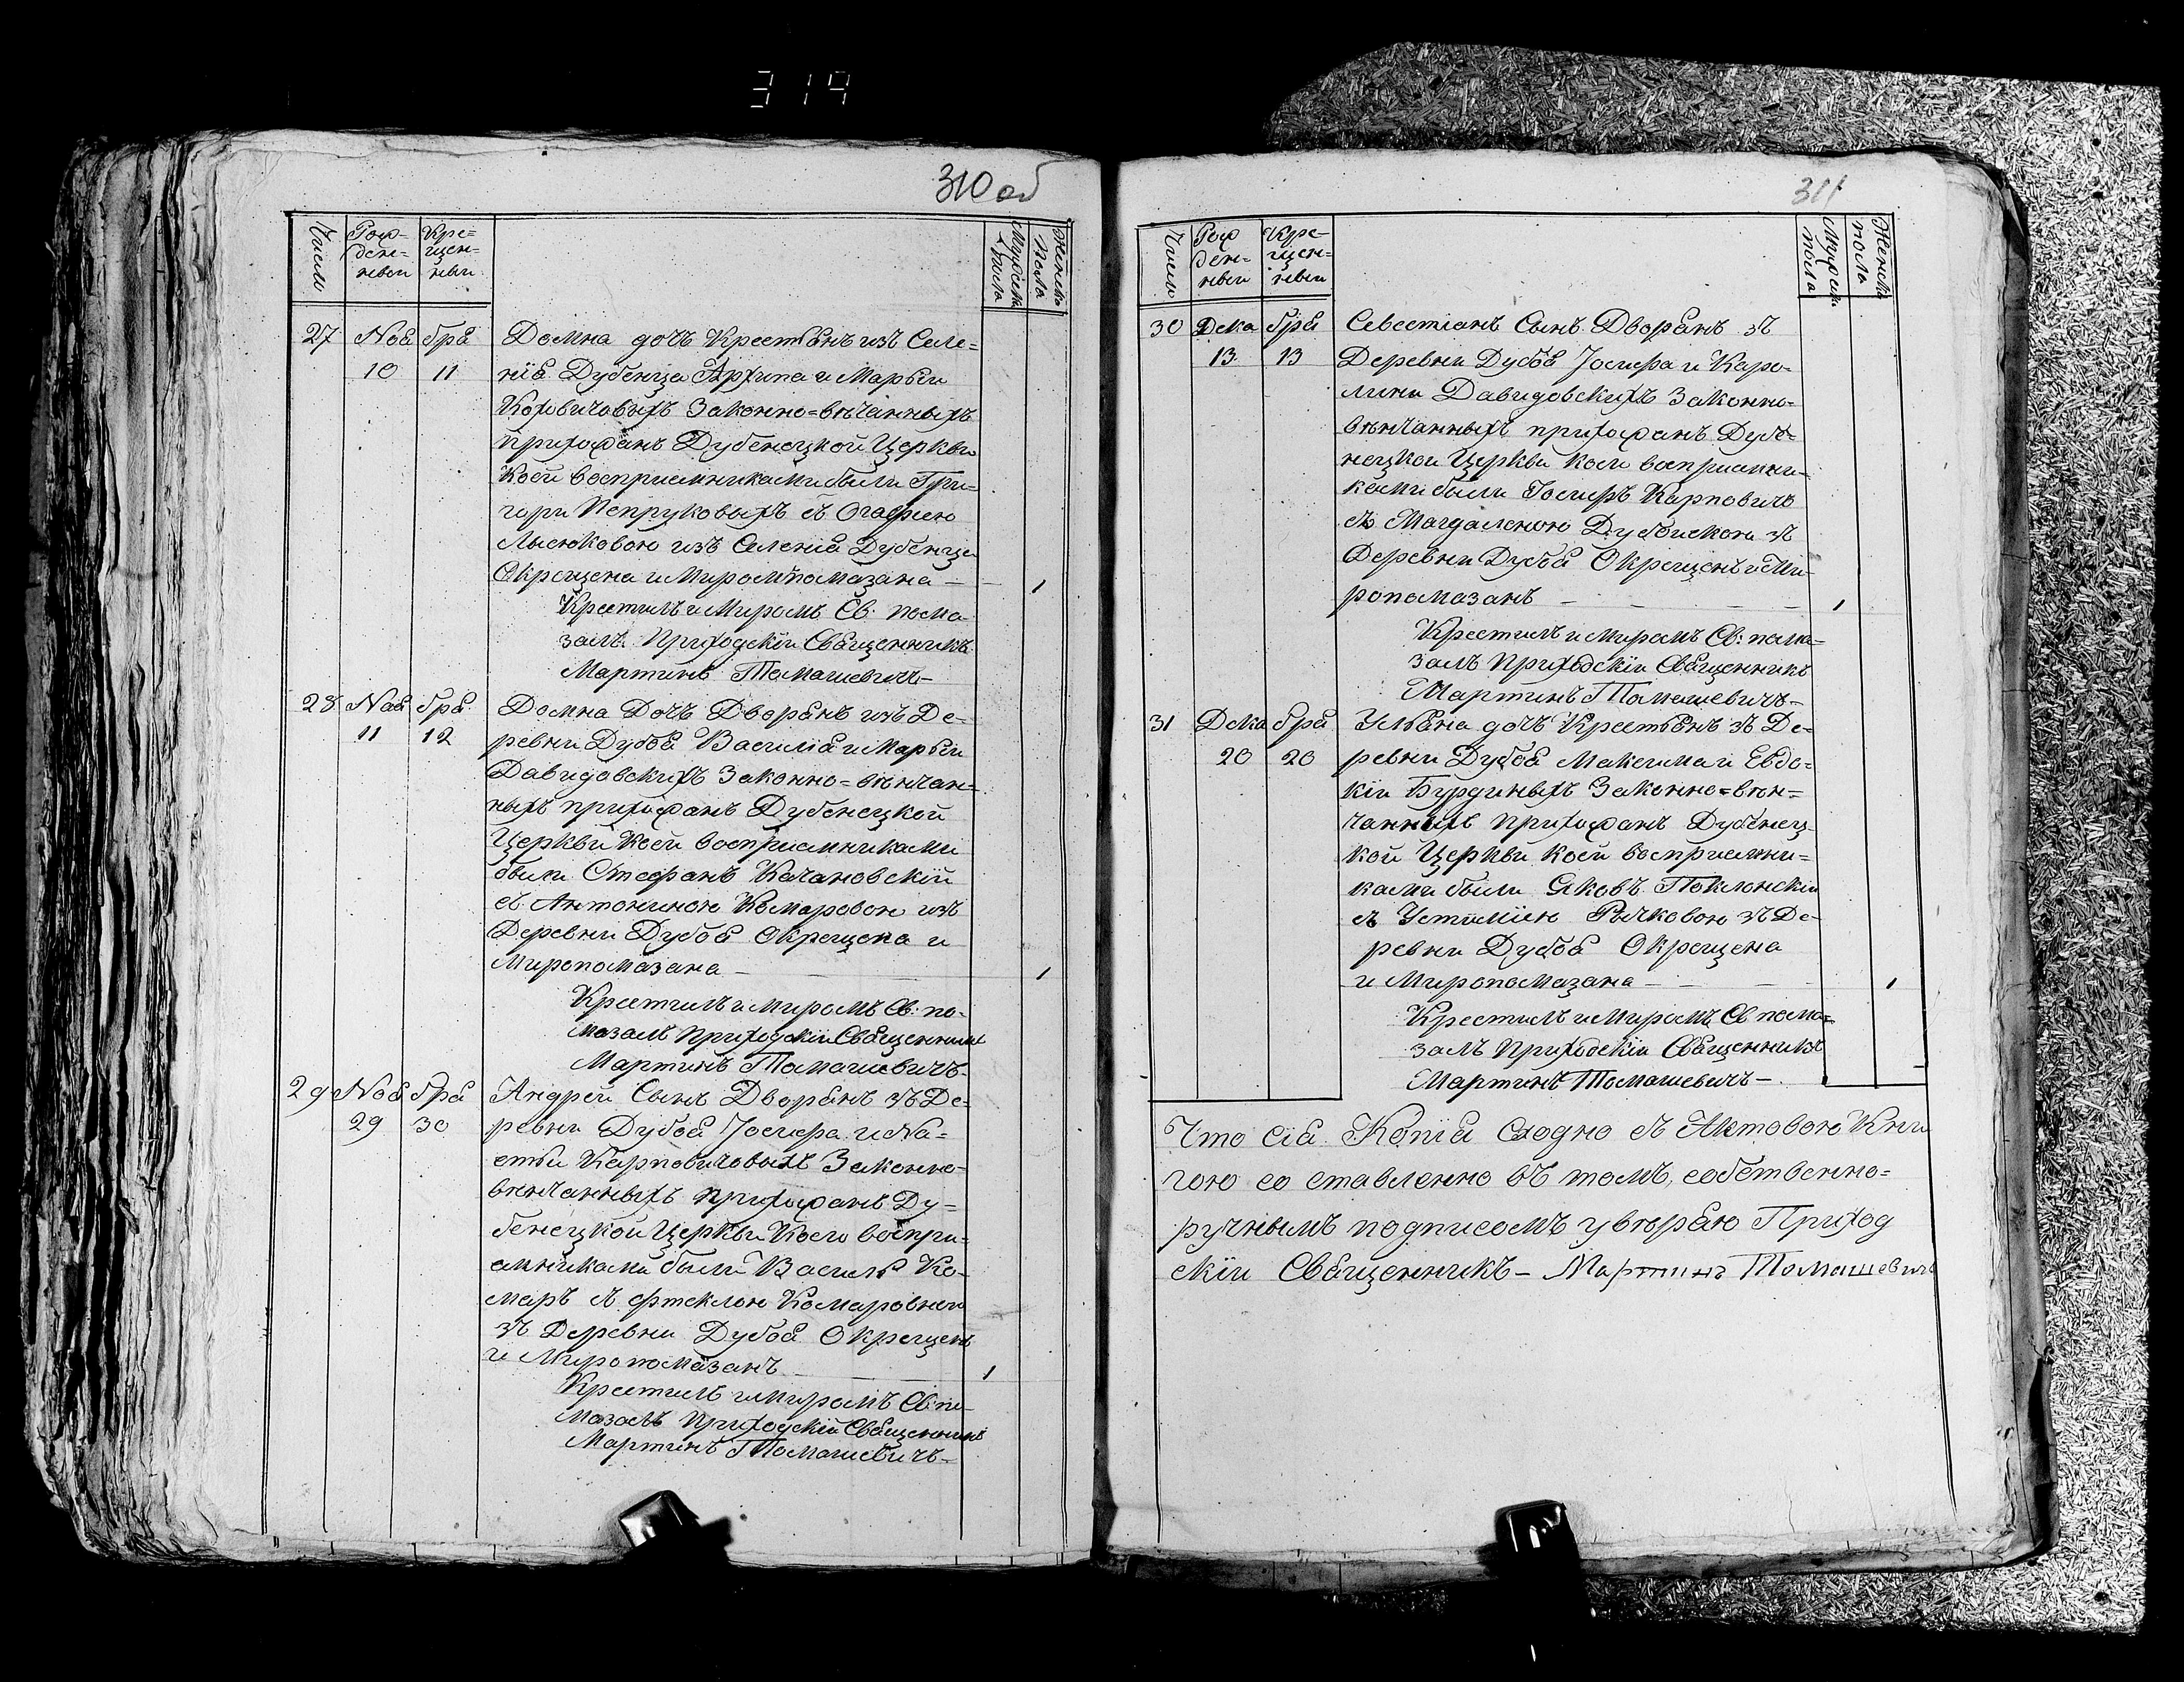 314
310 об
Число
Рож-
ден-
ныи
Кре=
щен=
ныи
Мужеск:
пола
Женско
пола
27 Ноя бря Домна дочъ Крестьянъ изъ Селе=
10 11 нія Дубенца Архипа и Марьи
Коховичовыхъ Законно=венчанныхъ
прихожанъ Дубенецкой Церкви
Коей восприемниками были Гри=
гори Пепруковыхъ съ Огафиею
Лысюковою изъ Селенія Дубенца
Окрещена и Миромъ помазана — 1
Крестилъ и Миромъ Св: пома
залъ Приходскій Священникъ
Мартинъ Томашевичъ—
28 Ноя бря Домна Дочъ Дворянъ изъ Де=
11 12 ревни Дубоя Василія и Марьи
Давидовскихъ Законно=венчан=
ныхъ прихожанъ Дубенецкой
Церкви Коей восприемниками
были Стефанъ Качановскій
съ Антониною Комаровою изъ
Деревни Дубоя Окрещена и
Миропомазана — 1
Крестилъ и Миромъ Св: по-
мазалъ Приходскій Священникъ
Мартинъ Томашевичъ-
29 Ноя бря Андрей Сынъ Дворянъ зъ Де-
29 30 ревни Дубоя Іосифа и На=
стьи Карповичовыхъ Законно-
венчанныхъ прихожанъ Ду=
бенецкой Церкви Коего воспри-
емниками были Василь Ко-
маръ съ Фтеклою Комаровною
зъ Деревни Дубоя Окрещенъ
и Миропомазанъ 1
Крестилъ и Миромъ Св: по-
мазалъ Приходскій Священникъ
Мартинъ Томашевичъ-
311
Число
Рож
ден=
ныи
Кре-
щен=
ныи
Мужеск:
пола
Женска
пола
30 Дека бря Севестіанъ Сынъ Дворянъ зъ
13 13 Деревни Дубоя Іосифа и Каро-
лини Давидовскихъ Законно-
венчанныхъ прихожанъ Дубе-
нецкой Церкви коей восприемни-
ками были Іосифъ Карповичъ
съ Магдаленою Дубоискою зъ
Деревни Дубоя Окрещенъ и Ми-
ропомазанъ — 1
Крестилъ и Миромъ Св: пома=
залъ Приходскіи Священникъ
Мартинъ Томашевичъ-
31 Дека бря Ульяна дочъ Крестьянъ зъ Де-
20 20 ревни Дубоя Максима и Евдо=
кіи Бурдиныхъ Законно=вен=
чанныхъ прихожанъ Дубенец-
кой Церкви коей восприемни=
ками были Яковъ Поклонскіи
съ Устиміею Рычковою зъ Де-
ревни Дубоя Окрещена
и Миропомазана — 1
Крестилъ и Миромъ Св пома=
залъ Приходскіи Священникъ
Мартинъ Томашевичъ—.
Что сія Копія сходно съ Актовою Кни
гою со ставленно въ томъ, собственно=
ручнымъ подписомъ уверяю Приход
скіи Священникъ- Мартинъ Томашевичъ